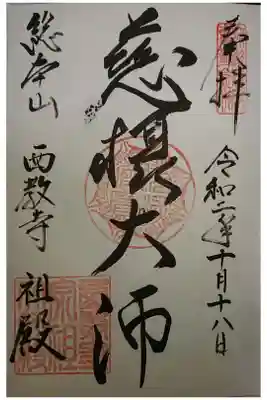 奉拝
令和二年十月十八日
慈摂大師
総本山
西教寺
祖殿